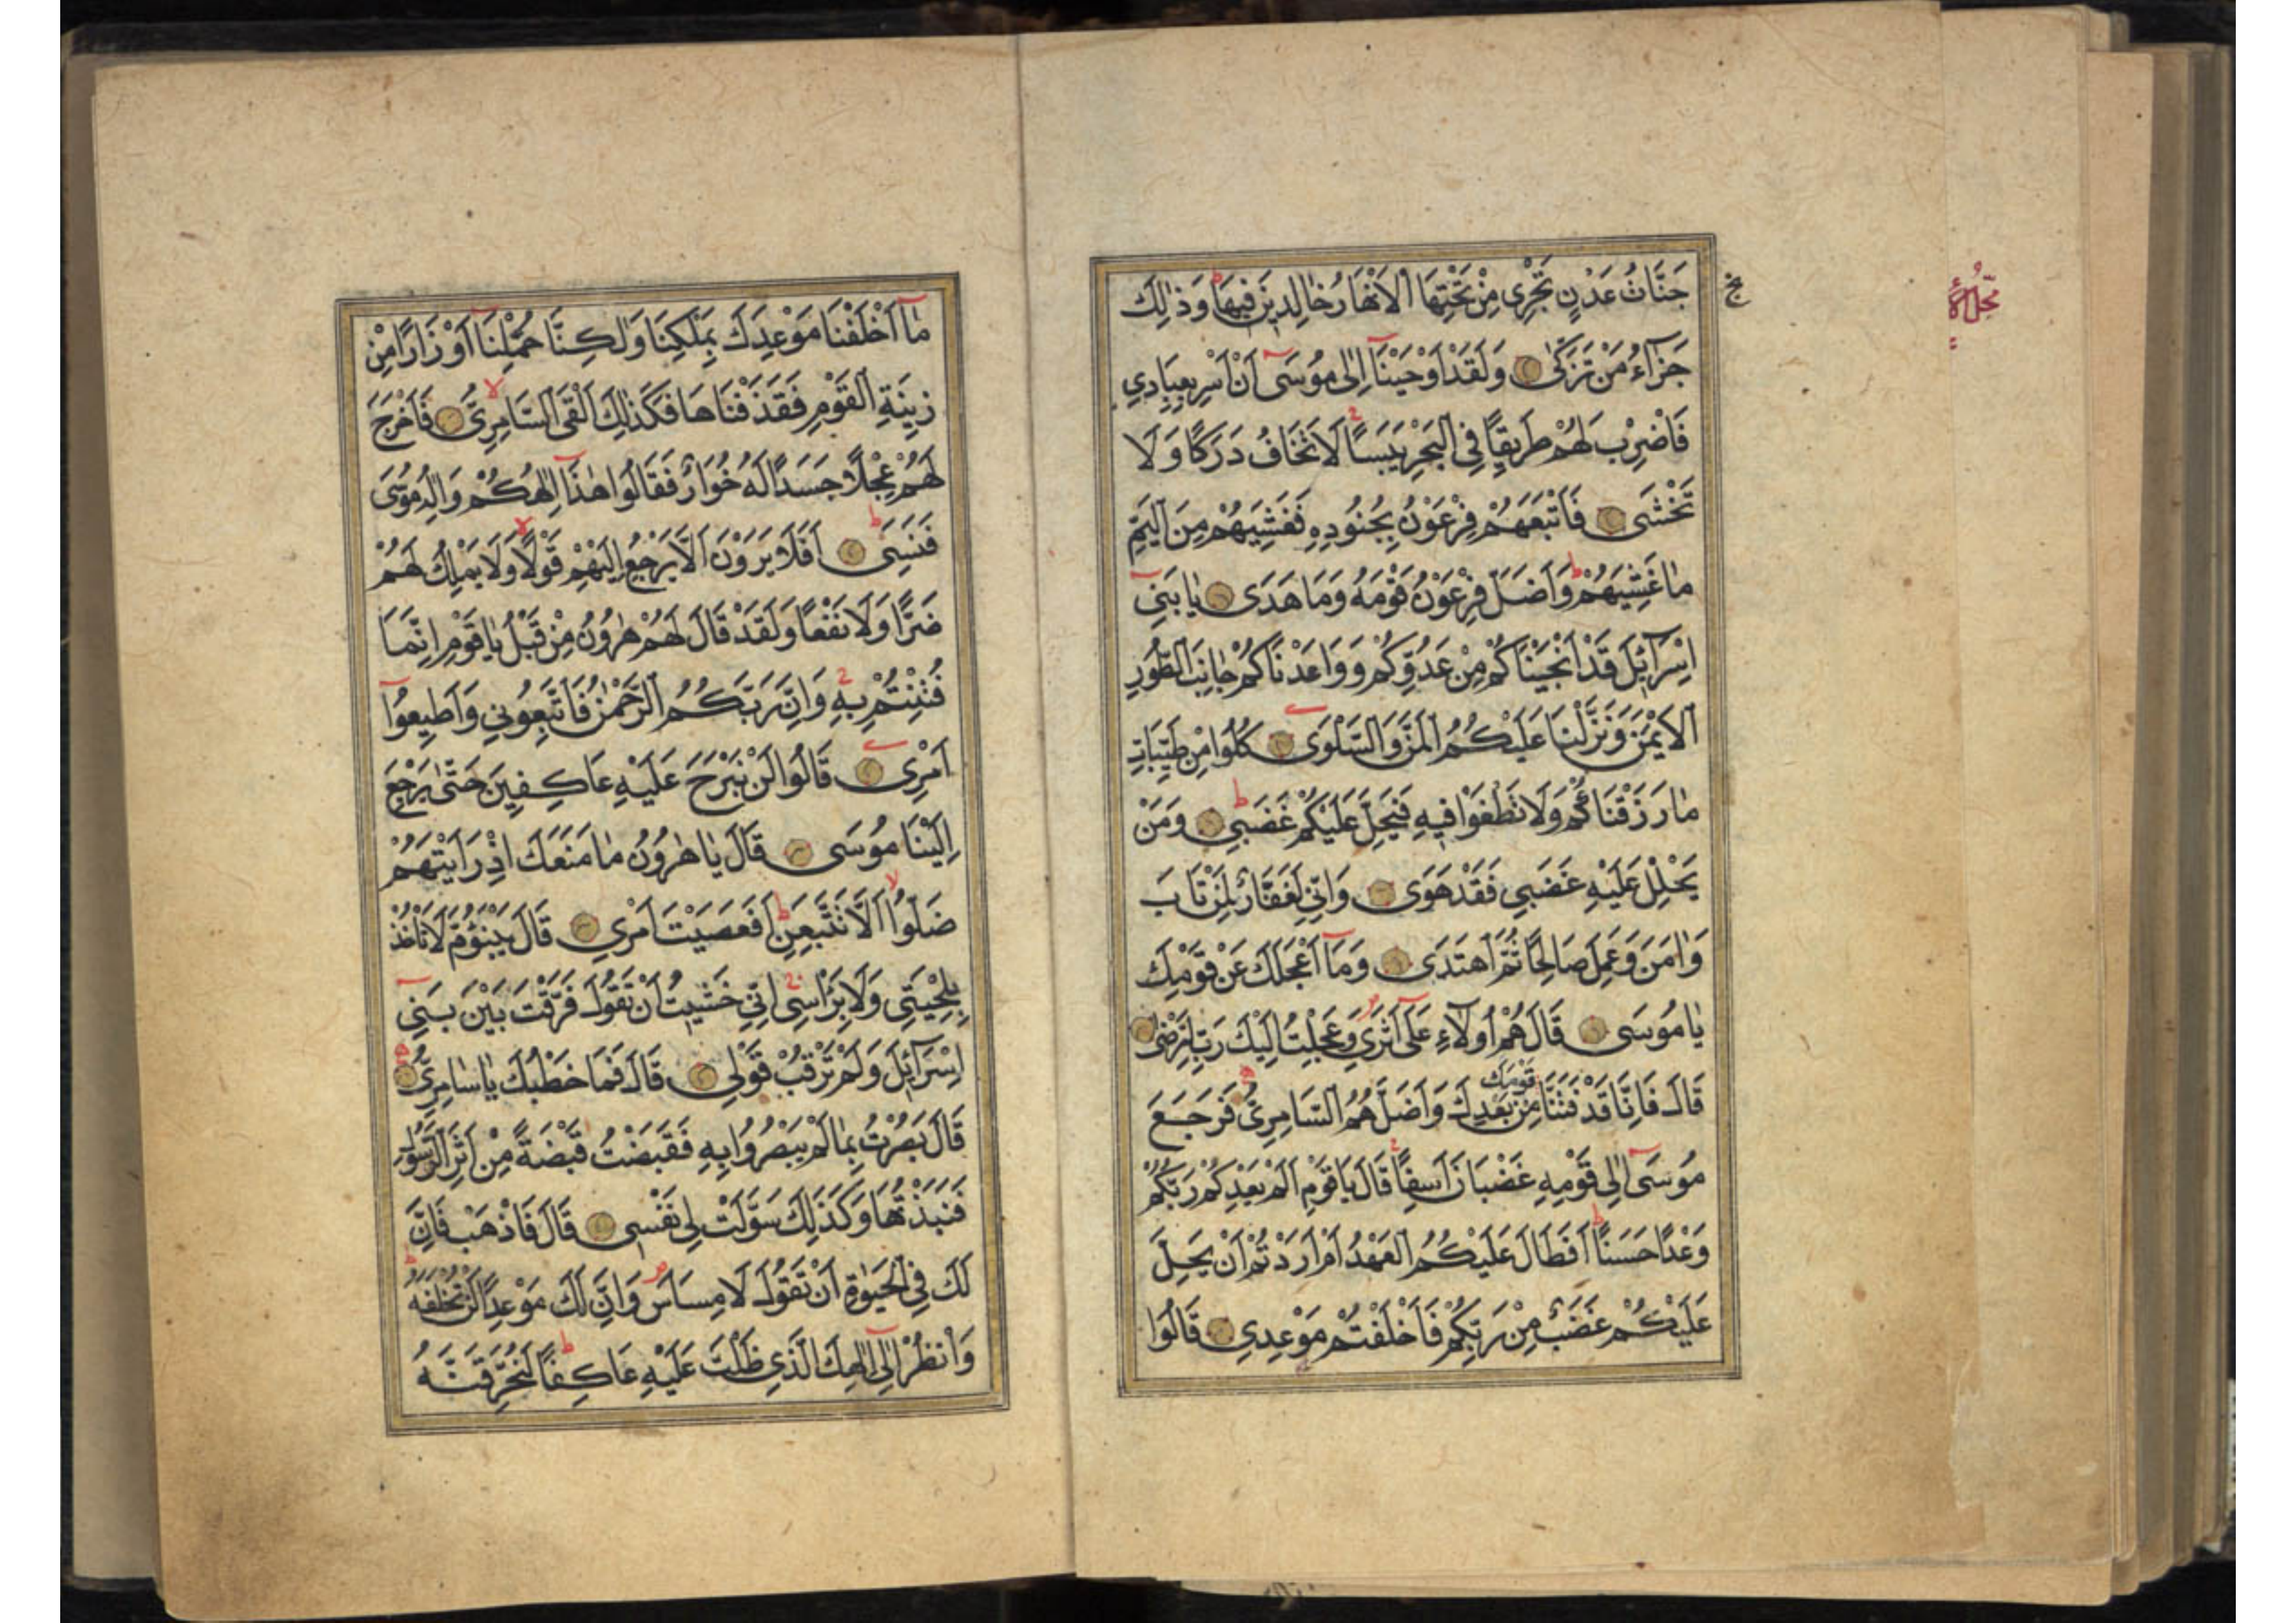 جَنَّاتُ عَدْنٍ تَجْرِي مِنْ تَحْتِهَا الْاَنْهَارُ خَالِدِينَ فِيهَا وَذٰلِكَ
جَزَآءُ مَنْ تَزَكّٰى وَلَقَدْ اَوْحَيْنَآ اِلٰى مُوسَىٓ اَنْ اَسْرِ بِعِبَادِي
فَاضْرِبْ لَهُمْ طَرِيقًا فِي الْبَحْرِ يَبَسًا لَا تَخَافُ دَرَكًا وَلَا
تَخْشَى فَاَتْبَعَهُمْ فِرْعَوْنُ بِجُنُودِهِ فَغَشِيَهُمْ مِنَ الْيَمِّ
مَا غَشِيَهُمْ وَاَضَلَّ فِرْعَوْنُ قَوْمَهُ وَمَا هَدَى يَا بَنِيٓ
اِسْرَآئِلَ قَدْ اَنْجَيْنَاكُمْ مِنْ عَدُوِّكُمْ وَوَاعَدْنَاكُمْ جَانِبَ الطُّورِ
الْاَيْمَنَ وَنَزَّلْنَا عَلَيْكُمُ الْمَنَّ وَالسَّلْوَى كُلُوا مِنْ طَيِّبَاتِ
مَا رَزَقْنَاكُمْ وَلَا تَطْغَوْا فِيهِ فَيَحِلَّ عَلَيْكُمْ غَضَبِي وَمَنْ
يَحْلِلْ عَلَيْهِ غَضَبِي فَقَدْ هَوَى وَاِنِّي لَغَفَّارٌ لِمَنْ تَابَ
وَاٰمَنَ وَعَمِلَ صَالِحًا ثُمَّ اهْتَدَى وَمَآ اَعْجَلَكَ عَنْ قَوْمِكَ
يَا مُوسَى قَالَ هُمْ اُولَآءِ عَلَىٓ اَثَرِي وَعَجِلْتُ اِلَيْكَ رَبِّ لِتَرْضٰى
قَالَ فَاِنَّا قَدْ فَتَنَّا قَوْمَكَ مِنْ بَعْدِكَ وَاَضَلَّهُمُ السَّامِرِيُّ فَرَجَعَ
مُوسَىٓ اِلٰى قَوْمِهِ غَضْبَانَ اَسِفًا قَالَ يَا قَوْمِ اَلَمْ يَعِدْكُمْ رَبُّكُمْ
وَعْدًا حَسَنًا اَفَطَالَ عَلَيْكُمُ الْعَهْدُ اَمْ اَرَدْتُمْ اَنْ يَحِلَّ
عَلَيْكُمْ غَضَبٌ مِنْ رَبِّكُمْ فَاَخْلَفْتُمْ مَوْعِدِي قَالُوا
مَآ اَخْلَفْنَا مَوْعِدَكَ بِمَلْكِنَا وَلٰكِنَّا حُمِّلْنَآ اَوْزَارًا مِنْ
زِينَةِ الْقَوْمِ فَقَذَفْنَاهَا فَكَذٰلِكَ اَلْقَى السَّامِرِيُّ فَاَخْرَجَ
لَهُمْ عِجْلًا جَسَدًا لَهُ خُوَارٌ فَقَالُوا هٰذَآ اِلٰهُكُمْ وَاِلٰهُ مُوسَى
فَنَسِيَ اَفَلَا يَرَوْنَ اَلَّا يَرْجِعُ اِلَيْهِمْ قَوْلًا وَلَا يَمْلِكُ لَهُمْ
ضَرًّا وَلَا نَفْعًا وَلَقَدْ قَالَ لَهُمْ هٰرُونُ مِنْ قَبْلُ يَا قَوْمِ اِنَّمَا
فُتِنْتُمْ بِهِ وَاِنَّ رَبَّكُمُ الرَّحْمٰنُ فَاتَّبِعُونِي وَاَطِيعُوٓا
اَمْرِى قَالُوا لَنْ نَبْرَحَ عَلَيْهِ عَاكِفِينَ حَتّٰى يَرْجِعَ
اِلَيْنَا مُوسَى قَالَ يَا هٰرُونُ مَا مَنَعَكَ اِذْ رَاَيْتَهُمْ
ضَلُّوا اَلَّا تَتَّبِعَنِ اَفَعَصَيْتَ اَمْرِي قَالَ يَبْنَؤُمَّ لَا تَاْخُذْ
بِلِحْيَتِي وَلَا بِرَاْسِي اِنِّي خَشِيتُ اَنْ تَقُولَ فَرَّقْتَ بَيْنَ بَنِيٓ
اِسْرَآئِلَ وَلَمْ تَرْقُبْ قَوْلِي قَالَ فَمَا خَطْبُكَ يَا سَامِرِيُّ
قَالَ بَصُرْتُ بِمَا لَمْ يَبْصُرُوا بِهِ فَقَبَضْتُ قَبْضَةً مِنْ اَثَرِ الرَّسُولِ
فَنَبَذْتُهَا وَكَذٰلِكَ سَوَّلَتْ لِي نَفْسِي قَالَ فَاذْهَبْ فَاِنَّ
لَكَ فِي الْحَيٰوةِ اَنْ تَقُولَ لَا مِسَاسَ وَاِنَّ لَكَ مَوْعِدًا لَنْ تُخْلَفَهُ
وَانْظُرْ اِلٰىٓ اِلٰهِكَ الَّذِي ظَلْتَ عَلَيْهِ عَاكِفًا لَنُحَرِّقَنَّهُ